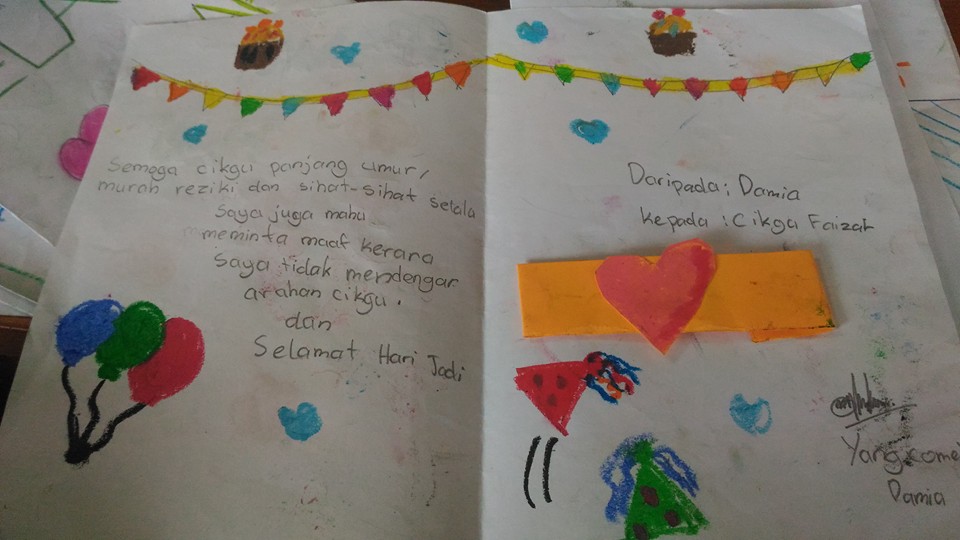 Semoga cikgu panjang umur,
murah reziki dan sihat-sihat selalu
Saya juga mahu
meminta maaf kerana
Saya tidak mendengar
arahan cikgu.
dan
Selamat Hari Jadi
Daripada : Damia
kepada : Cikgu Faizah
Yang comel
Damia